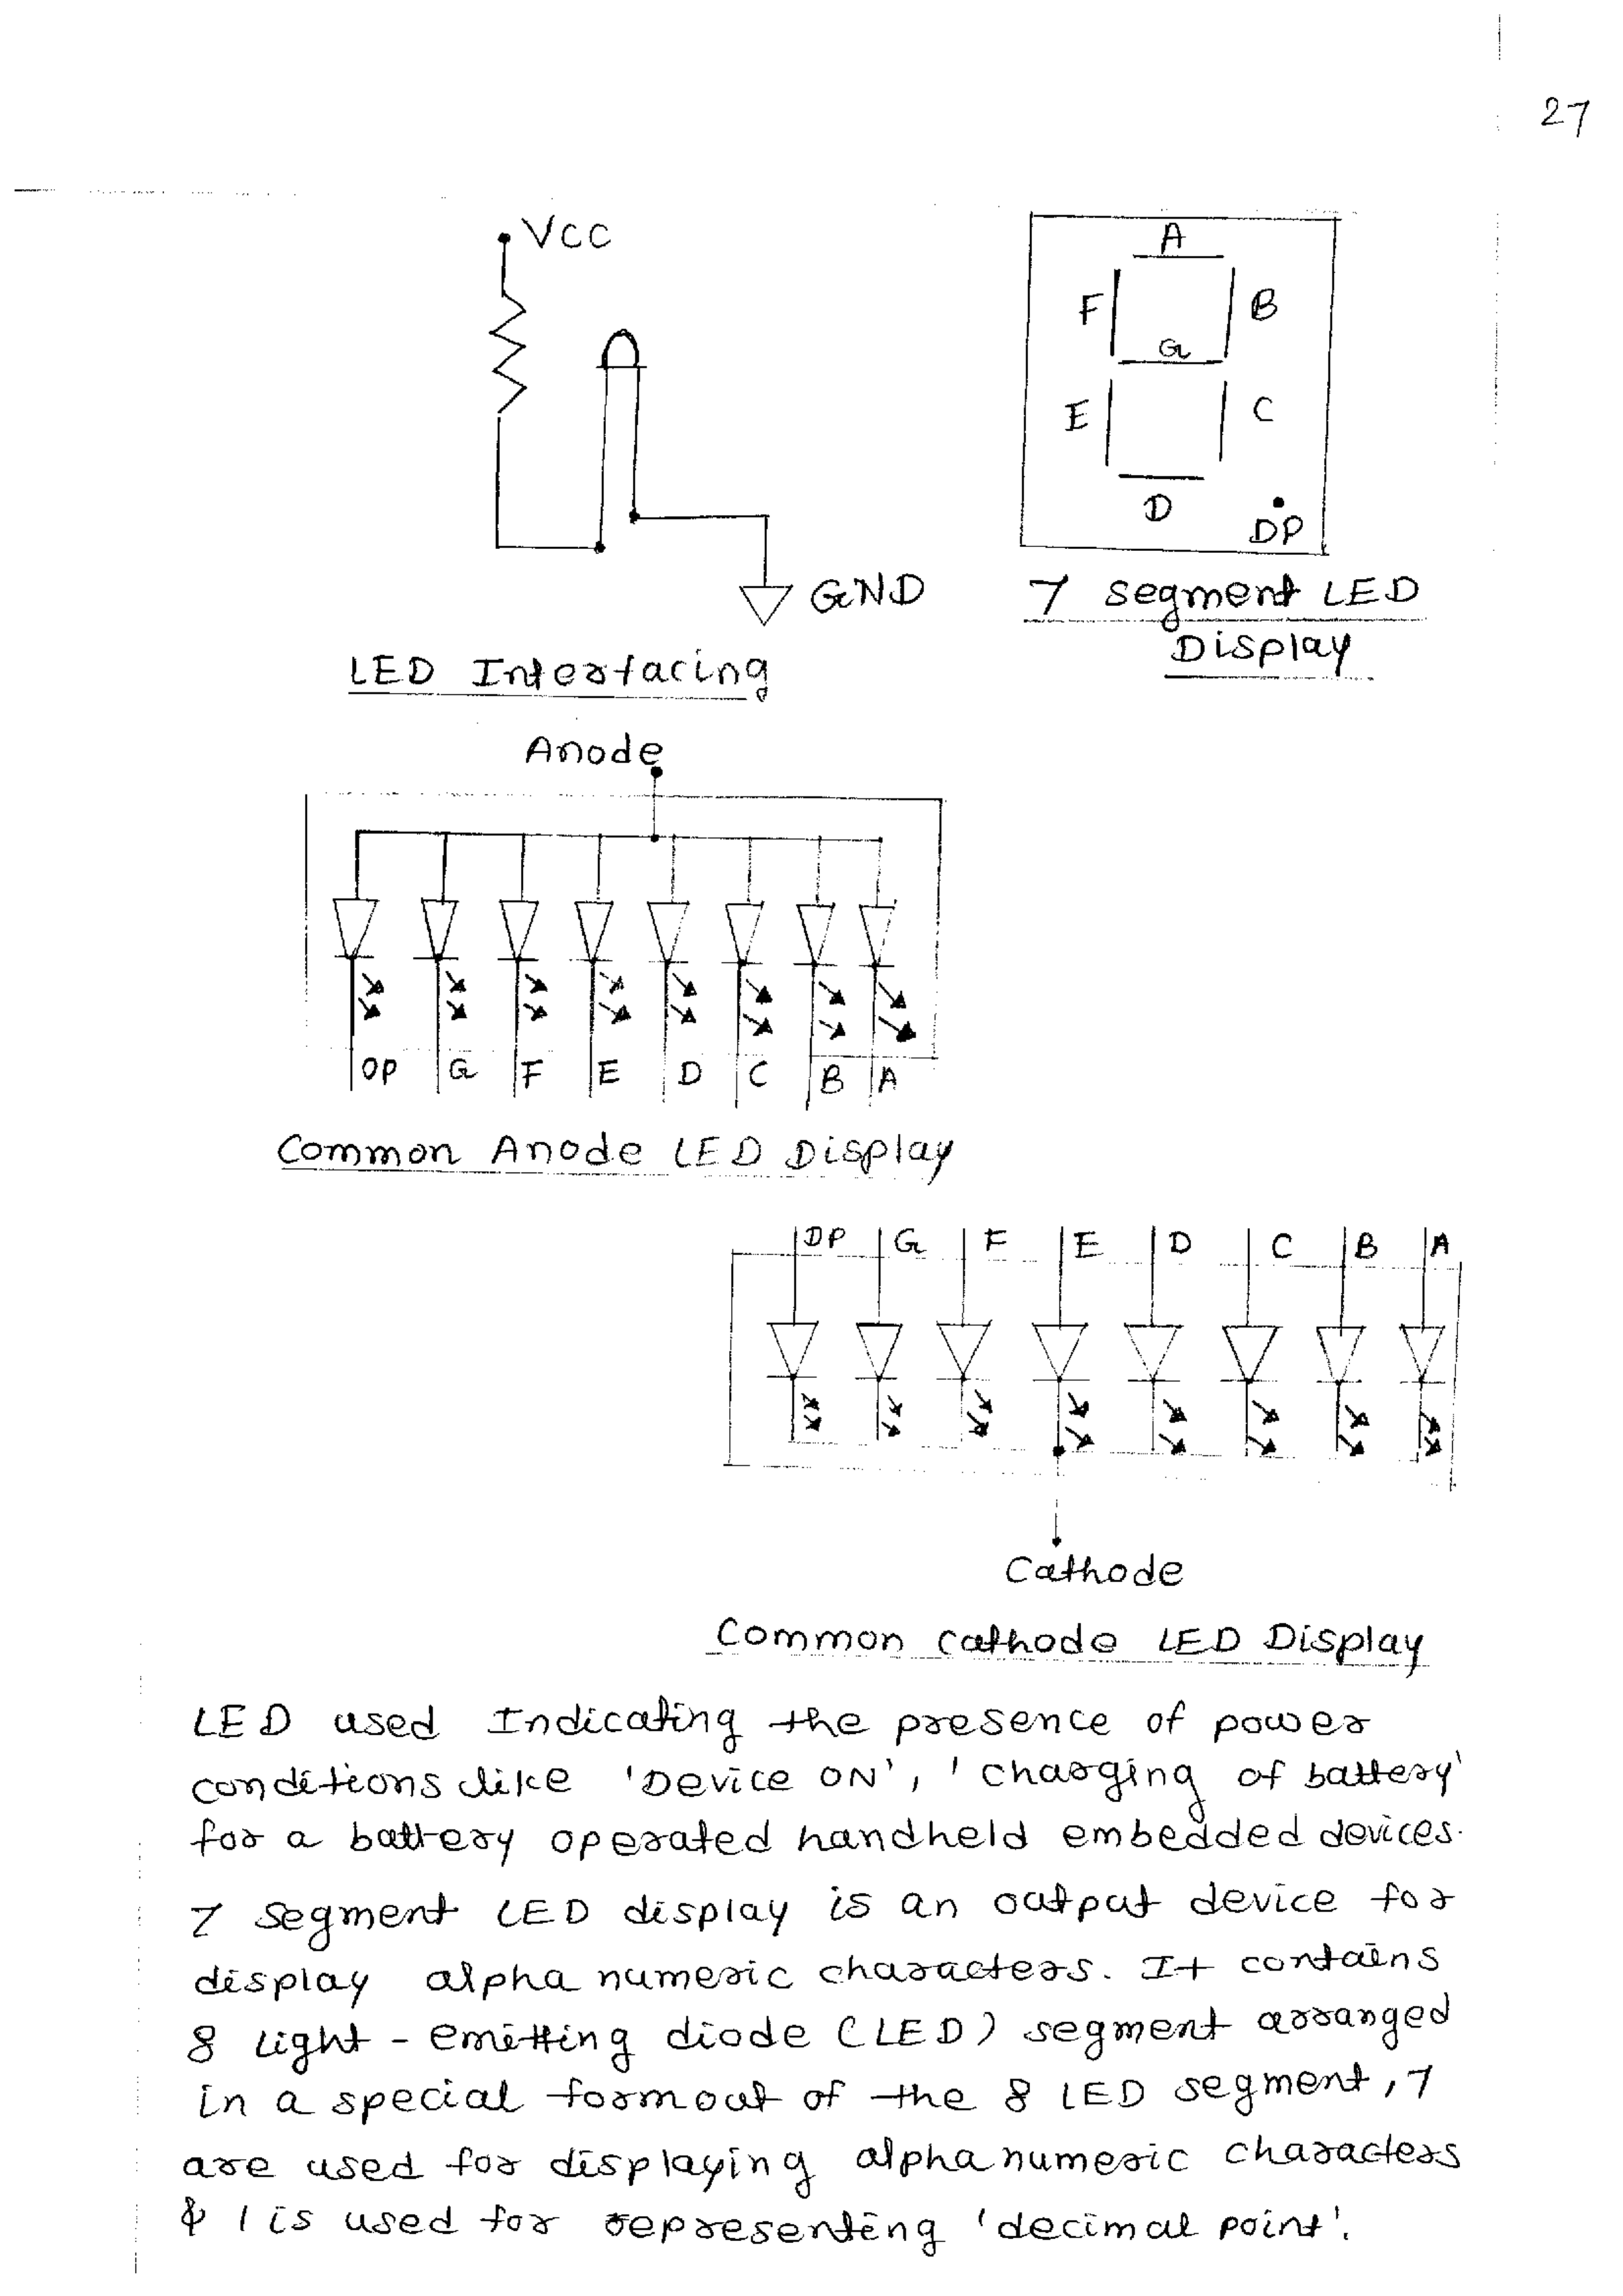 27
VCC
GND
LED Interfacing
A
F B
G
E C
D
DP
7 segment LED
Display
Anode
DP G F E D C B A
Common Anode LED Display
DP G F E D C B A
Cathode
Common Cathode LED Display
LED used Indicating the presence of power
conditions like 'Device ON', 'charging of battery'
for a battery operated handheld embedded devices.
7 segment LED display is an output device for
display alpha numeric characters. It contains
8 light-emitting diode (LED) segment arranged
in a special form out of the 8 LED segment, 7
are used for displaying alpha numeric characters
& 1 is used for representing 'decimal point'.